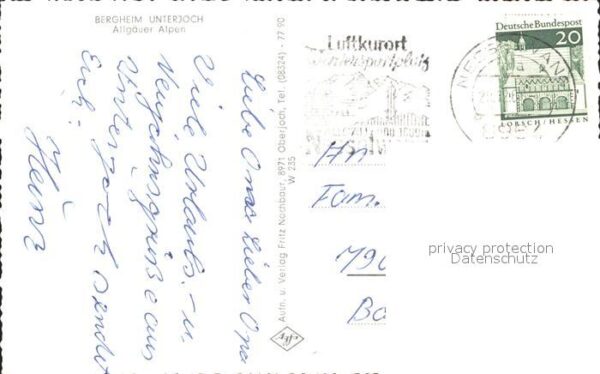 BERGHEIM UNTERJOCH
Allgäuer Alpen
Liebe Oma Lieber Opa
Viele Urlaubs.- u.
Neujahrsgrüße aus
Unterjoch sendet
Euch:
Heinz
Aufn. u. Verlag Fritz Nachbaur, 8971 Oberjoch, Tel. (08324) - 77 90
W 235
Luftkurort
Wintersportplatz
Deutsche Bundespost
20
LORSCH/HESSEN
An
Fam.
790
privacy protection
Datenschutz